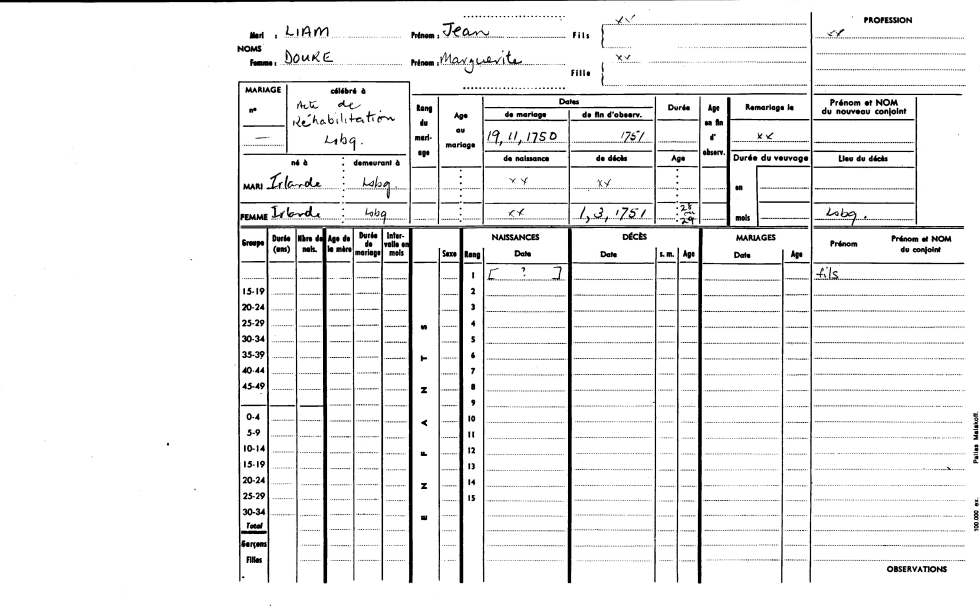 xx PROFESSION
Mari : LIAM Prénom : Jean Fils xx
NOMS
Femme : DOUKE Prénom : Marguerite Fille xx
MARIAGE célébré à
n° Acte de
Réhabilitation
— Lsbg.
Rang du mariage Age au mariage Dates Durée Age en fin d'observ. Remariage le Prénom et NOM du nouveau conjoint
de mariage de fin d'observ.
19, 11, 1750 1751 xx
né à demeurant à de naissance de décès Age Durée du veuvage Lieu du décès
MARI Irlande Lsbg. xx xx en
FEMME Irlande Lsbg xx 1, 3, 1751 28 ou 29 mois Lsbg.
Groupe Durée (ans) Nbre de nais. Age de la mère Durée de mariage Intervalle en mois ENFANTS Sexe Rang NAISSANCES DÉCÈS MARIAGES Prénom Prénom et NOM du conjoint
Date Date s. m. Age Date Age
1 [ ? ] fils
15-19 2
20-24 3
25-29 4
30-34 5
35-39 6
40-44 7
45-49 8
9
0-4 10
5-9 11
10-14 12
15-19 13
20-24 14
25-29 15
30-34
Total
Garçons
Filles
OBSERVATIONS
100.000 ex. Pallas Malakoff.